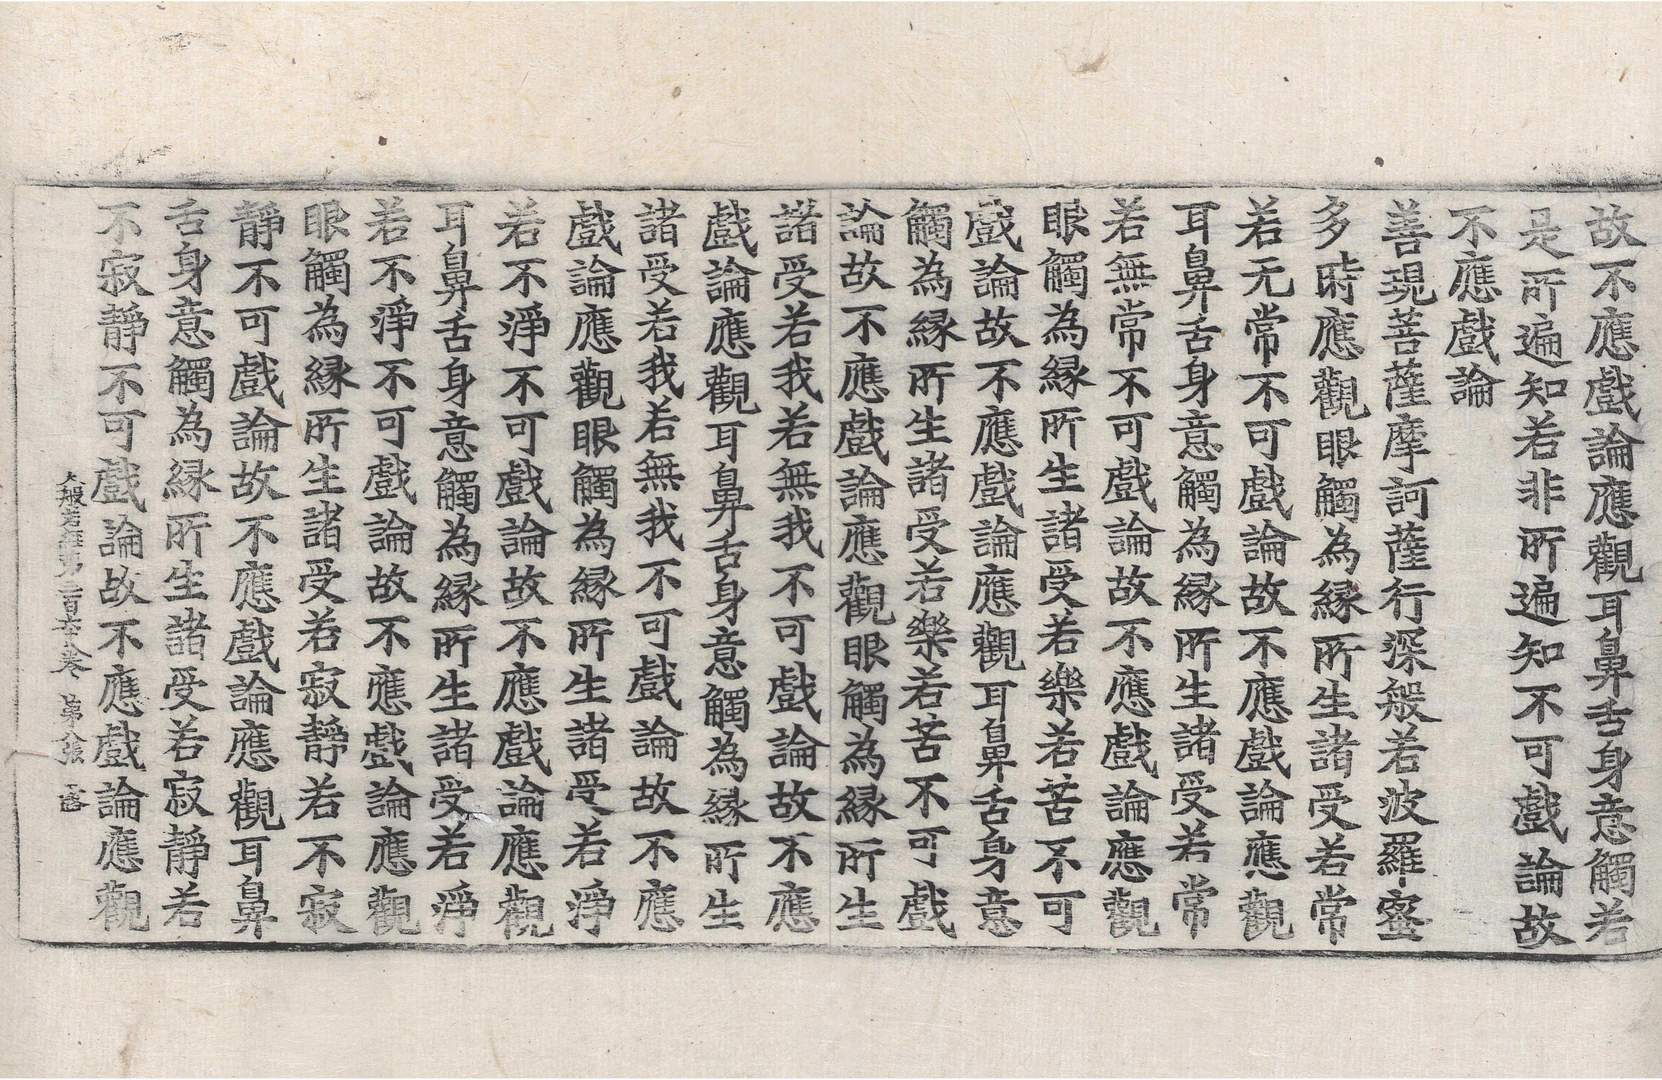 故不應戲論應觀耳鼻舌身意觸若
是所遍知若非所遍知不可戲論故
不應戲論
善現菩薩摩訶薩行深般若波羅蜜
多時應觀眼觸為緣所生諸受若常
若无常不可戲論故不應戲論應觀
耳鼻舌身意觸為緣所生諸受若常
若無常不可戲論故不應戲論應觀
眼觸為緣所生諸受若樂若苦不可
戲論故不應戲論應觀耳鼻舌身意
觸為緣所生諸受若樂若苦不可戲
論故不應戲論應觀眼觸為緣所生
諸受若我若無我不可戲論故不應
戲論應觀耳鼻舌身意觸為緣所生
諸受若我若無我不可戲論故不應
戲論應觀眼觸為緣所生諸受若淨
若不淨不可戲論故不應戲論應觀
耳鼻舌身意觸為緣所生諸受若淨
若不淨不可戲論故不應戲論應觀
眼觸為緣所生諸受若寂靜若不寂
靜不可戲論故不應戲論應觀耳鼻
舌身意觸為緣所生諸受若寂靜若
不寂靜不可戲論故不應戲論應觀
大般若經第三百六十卷 第 張